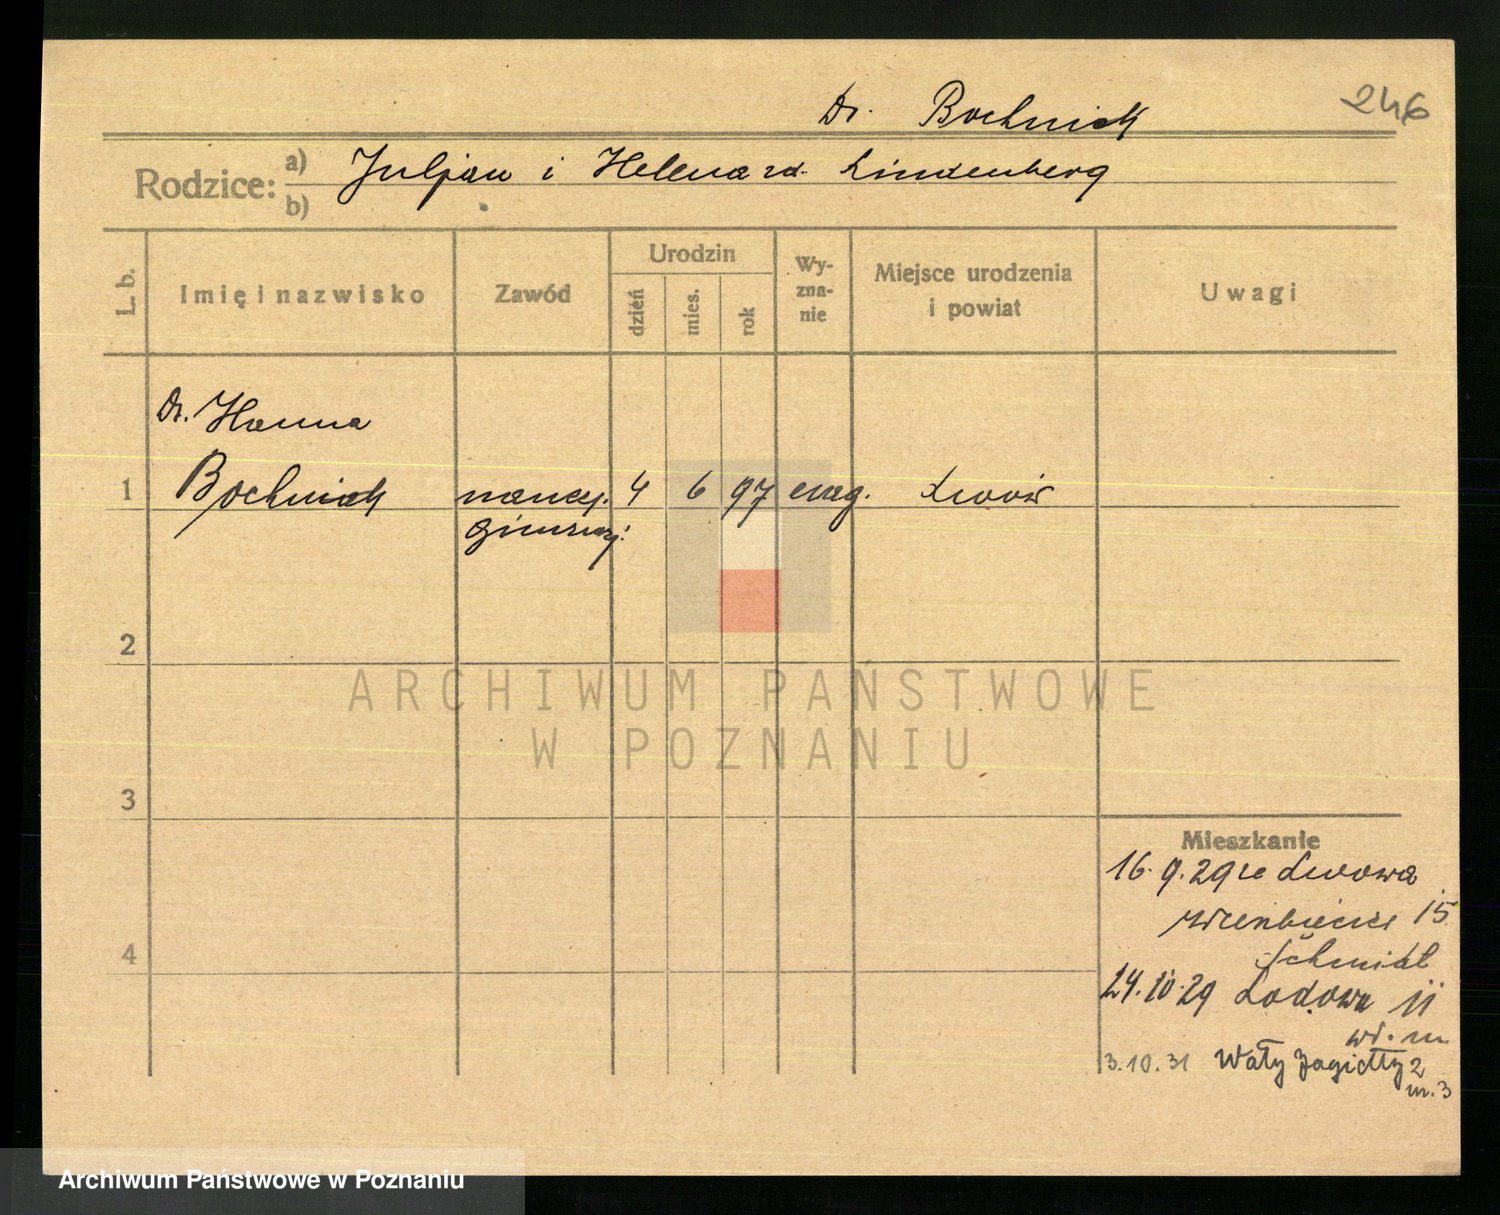 246
Dr. Bochniak
Rodzice: a) Juljan i Helena zd. Lindenberg
b)
L. b.
Imię i nazwisko
Zawód
Urodzin
dzień
mies.
rok
Wy-
zna-
nie
Miejsce urodzenia
i powiat
Uwagi
Dr. Hanna
1 Bochniak naucz. 4 6 97 ewag. Lwów
gimnazj.
2
ARCHIWUM PAŃSTWOWE
W POZNANIU
3
Mieszkanie
16.9.29 ze Lwowa
Wierzbięcice 15
Schmidt
4
24.10.29 Lodowa 11
wł. m
3.10.31 Wały Jagiełły 2
m. 3
Archiwum Państwowe w Poznaniu